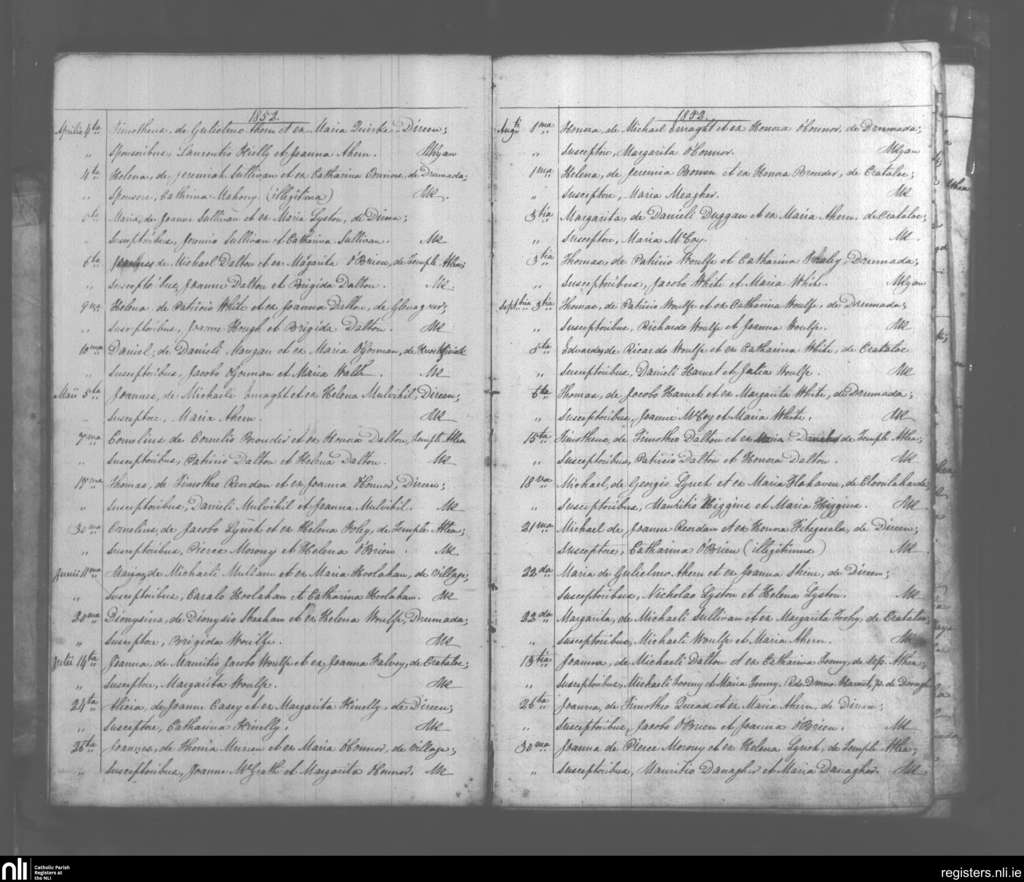 1852.
Aprilis 4ta Timotheus, de Gulielmo Ahern et ex Maria Quirke, Direen;
" Sponsoribus, Laurentio Kielly et Joanna Ahern. Mgan
4ta Helena, de Jeremiah Sullivan et ex Catharina Connors, de Drumada;
" Sponsore, Catherina Mahony. (illegitima) Me.
Maria, de Joanne Sullivan et ex Maria Lyston, de
Susceptoribus, Joannis Sullivan et Catharina Sullivan. Me
6ta de Michael Dalton et ex Margarita O'Brien, de Temple Athea
" Susceptoribus, Joanne Dalton et Brigida Dalton. Me
9na Helena de Patricio White et ex Joanna Dalton, de
" Susceptoribus, Joanne Hough et Brigida Dalton. Me
10ma Daniel, de Danieli Mangan et ex Maria O'Gorman, de
" Susceptoribus, Jacobo O'Gorman et Maria Walsh. Me
Maii 5ta Joannes, de Michaele et ex Helena Mulvihil, Direen;
Susceptore, Maria Ahern. Me
7ma Cornelius de Cornelio Brouder et ex Honora Dalton, Temple Athea
" Susceptoribus, Patricio Dalton et Helena Dalton. Me
Thomas, de Timotheo Rendan et ex Joanna O'Connor, Direen;
" Susceptoribus, Danieli Mulvihil et Joanna Mulvihil. Me
30ma Cornelius, de Jacobo Lynch et ex Helena Foley, de Temple Athea;
" Susceptoribus, Pierce Morony et Helena O'Brien. Me
Junii 11ma de Michaeli Mullane et ex Maria Hoolahan, de Village;
" Susceptoribus, Carolo Hoolahan et Catharina Hoolahan. Me
20ma Dionysius, de Dionysio Sheahan et ex Helena Woulfe, Drumada;
" Susceptore, Brigida Woulfe. Me
Julii 14ta Joanna, de Mauritio Jacobo Woulfe et ex Joanna Falvey, de Cratatloe;
" Susceptore, Margarita Woulfe. Me
24ta Alicia, de Joanne Casey et ex Margarita Kinelly, de Direen;
" Susceptore, Catharina Kinelly. Me
25ta Joannes, de Thoma et ex Maria O'Connor, de Village;
" Susceptoribus, Joanne McGrath et Margarita O'Connor. Me
1852.
Augti 1ma Honora, de Michael Enraght et ex Honora O'Connor, de Drumada;
" Susceptore, Margarita O'Connor. Mgan
1ma Helena, de Jeremia Brosnan et ex Honora Brouder, de Cratatloe;
" Susceptore, Maria Meagher. Me
3tia Margarita, de Danieli Duggan et ex Maria Ahern, de Cratatloe;
" Susceptore, Maria McCoy. Me
3tia Thomas, de Patricio Woulfe et Catharina Drumada;
" Susceptoribus, Jacobo White et Maria White. Mgan
Septbris 3tia Thomas, de Patricio Woulfe et ex Catharina Woulfe, de Drumada;
" Susceptoribus, Richardo Woulfe et Joanna Woulfe. Me
5ta Edwardus, de Ricardo Woulfe et ex Catharina White, de Cratatloe
" Susceptoribus, Danieli Harnet et Julia Woulfe. Me
6ta Thomas, de Jacobo Harnet et ex Margarita White, de Drumada;
" Susceptoribus, Joanne McCoy et Maria White. Me
15ta Timotheus, de Timotheo Dalton et ex Maria de Temple Athea;
" Susceptoribus, Patricio Dalton et Honora Dalton. Me
18va Michael, de Georgio Lynch et ex Maria Hahaven, de
" Susceptoribus, Mauritii Higgins et Maria Higgins. Me
21ma Michael de Joanne Rendan et ex Honora Fitzgerald, de Direen;
Susceptore, Catharina O'Brien (illegitimus) Me
22da Maria de Gulielmo Ahern et ex Joanna Shine, de Direen;
Susceptoribus, Nicholao Lyston et Helena Lyston. Me
22da Margarita, de Michaeli Sullivan et ex Margarita de Cratatloe;
" Susceptoribus, Michaeli Woulfe et Maria Ahern. Me
Joanna, de Michaeli Dalton et ex Catharina de Athea;
Susceptoribus, Michaeli et Maria
25ta Joanna, de Timotheo et ex Maria Ahern, de Direen;
" Susceptoribus, Jacobo O'Brien et Joanna O'Brien. Me
30ma Joanna de Pierce Morony et ex Helena Lynch, de Temple Athea;
" Susceptoribus, Mauritio Danagher et Maria Danagher. Me
nli
Catholic Parish
Registers at
the NLI
registers.nli.ie